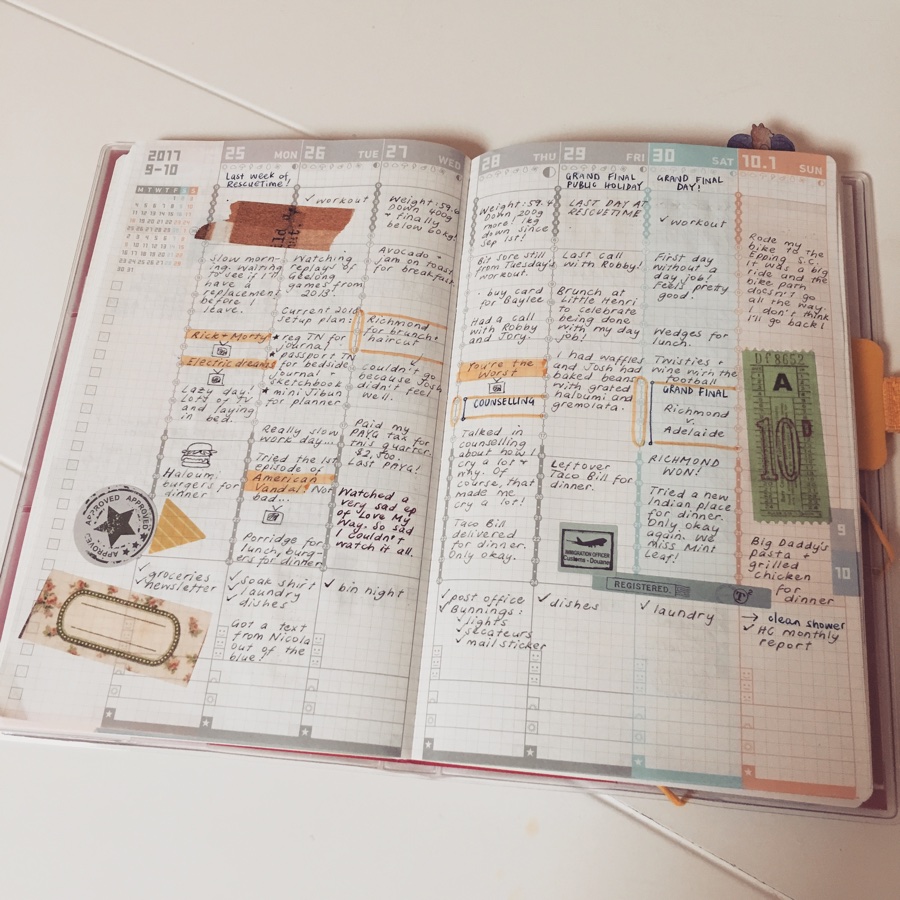 2017
9-10
M T W T F S S
25 MON
Last week of
RESCUETIME!
slow morn-
ing. Waiting
to see if I'll
have a
replacement
before I
leave.
Rick+Morty
Electric dreams
Lazy day!
Lots of TV
and laying
in bed.
Haloumi
burgers for
dinner
✓ groceries
✓ newsletter
APPROVED APPROVED
APPROVED
26 TUE
✓ workout
Watching
replays of
Geelong
games from
2013.
Current 2018
setup plan:
★ reg TN for
journal
★ passport TN
for bedside
journal +
sketchbook
★ mini Jibun
for planner
Really slow
work day...
Tried the 1st
episode of
American
Vandal? Not
bad...
Porridge for
lunch, burg-
ers for dinner
✓ soak shirt
✓ laundry
✓ dishes
Got a text
from Nicola
out of the
blue!
27 WED
Weight: 59.6
Down 400g
+ finally
below 60kg!
Avocado +
jam on toast
for breakfast
Richmond
for brunch+
haircut
Couldn't go
because Josh
didn't feel
well.
Paid my
PAYG tax for
this quarter.
$2,500.
Last PAYG!
Watched a
very sad ep
of Love My
Way. So sad
I couldn't
watch it all.
✓ bin night
28 THU
Weight: 59.4
Down 200g
more! 1kg
down since
Sep 1st!
Bit sore still
from Tuesday's
workout.
· buy card
for Baylee
Had a call
with Robby
and Jory.
You're the
Worst
COUNSELLING
Talked in
counselling
about how I
cry a lot +
why. Of
course, that
made me
cry a lot!
Taco Bill
delivered
for dinner.
Only okay.
✓ post office
✓ Bunnings:
✓ lights
✓ secateurs
✓ mail sticker
29 FRI
GRAND FINAL
PUBLIC HOLIDAY
LAST DAY AT
RESCUETIME
Last call
with Robby!
Brunch at
Little Henri
to celebrate
being done
with my day
job!
I had waffles
and Josh had
baked beans
with grated
haloumi and
gremolata.
Leftover
Taco Bill for
dinner.
IMMIGRATION OFFICER
Customs - Douane
✓ dishes
30 SAT
GRAND FINAL
DAY!
✓ workout
First day
without a
day job!
Feels pretty
good!
Wedges for
lunch.
Twisties +
wine with the
football
GRAND FINAL
Richmond
v.
Adelaide
RICHMOND
WON!
Tried a new
Indian place
for dinner.
Only okay
again. We
miss Mint
Leaf!
REGISTERED.
✓ laundry
10.1 SUN
Rode my
bike to the
Epping S.C.
It was a big
ride and the
bike path
doesn't go
all the way.
I don't think
I'll go back!
Df 8652
A
10D
Big Daddy's
pasta +
grilled
chicken
for
dinner
→ clean shower
✓ HG monthly
report
9
10